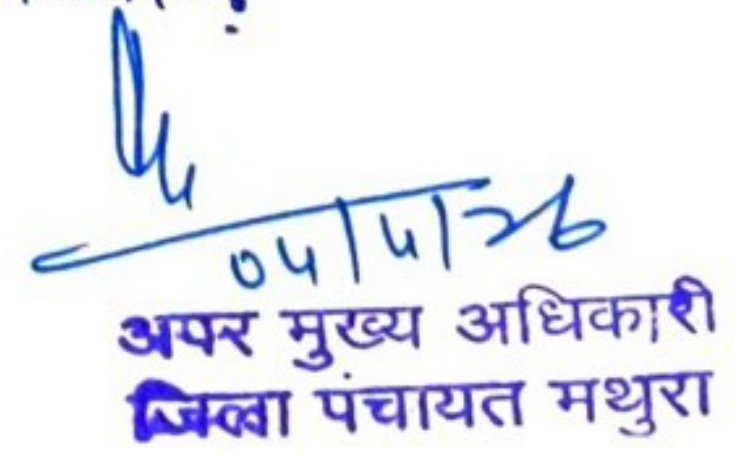 04/4/26
अपर मुख्य अधिकारी
जिला पंचायत मथुरा